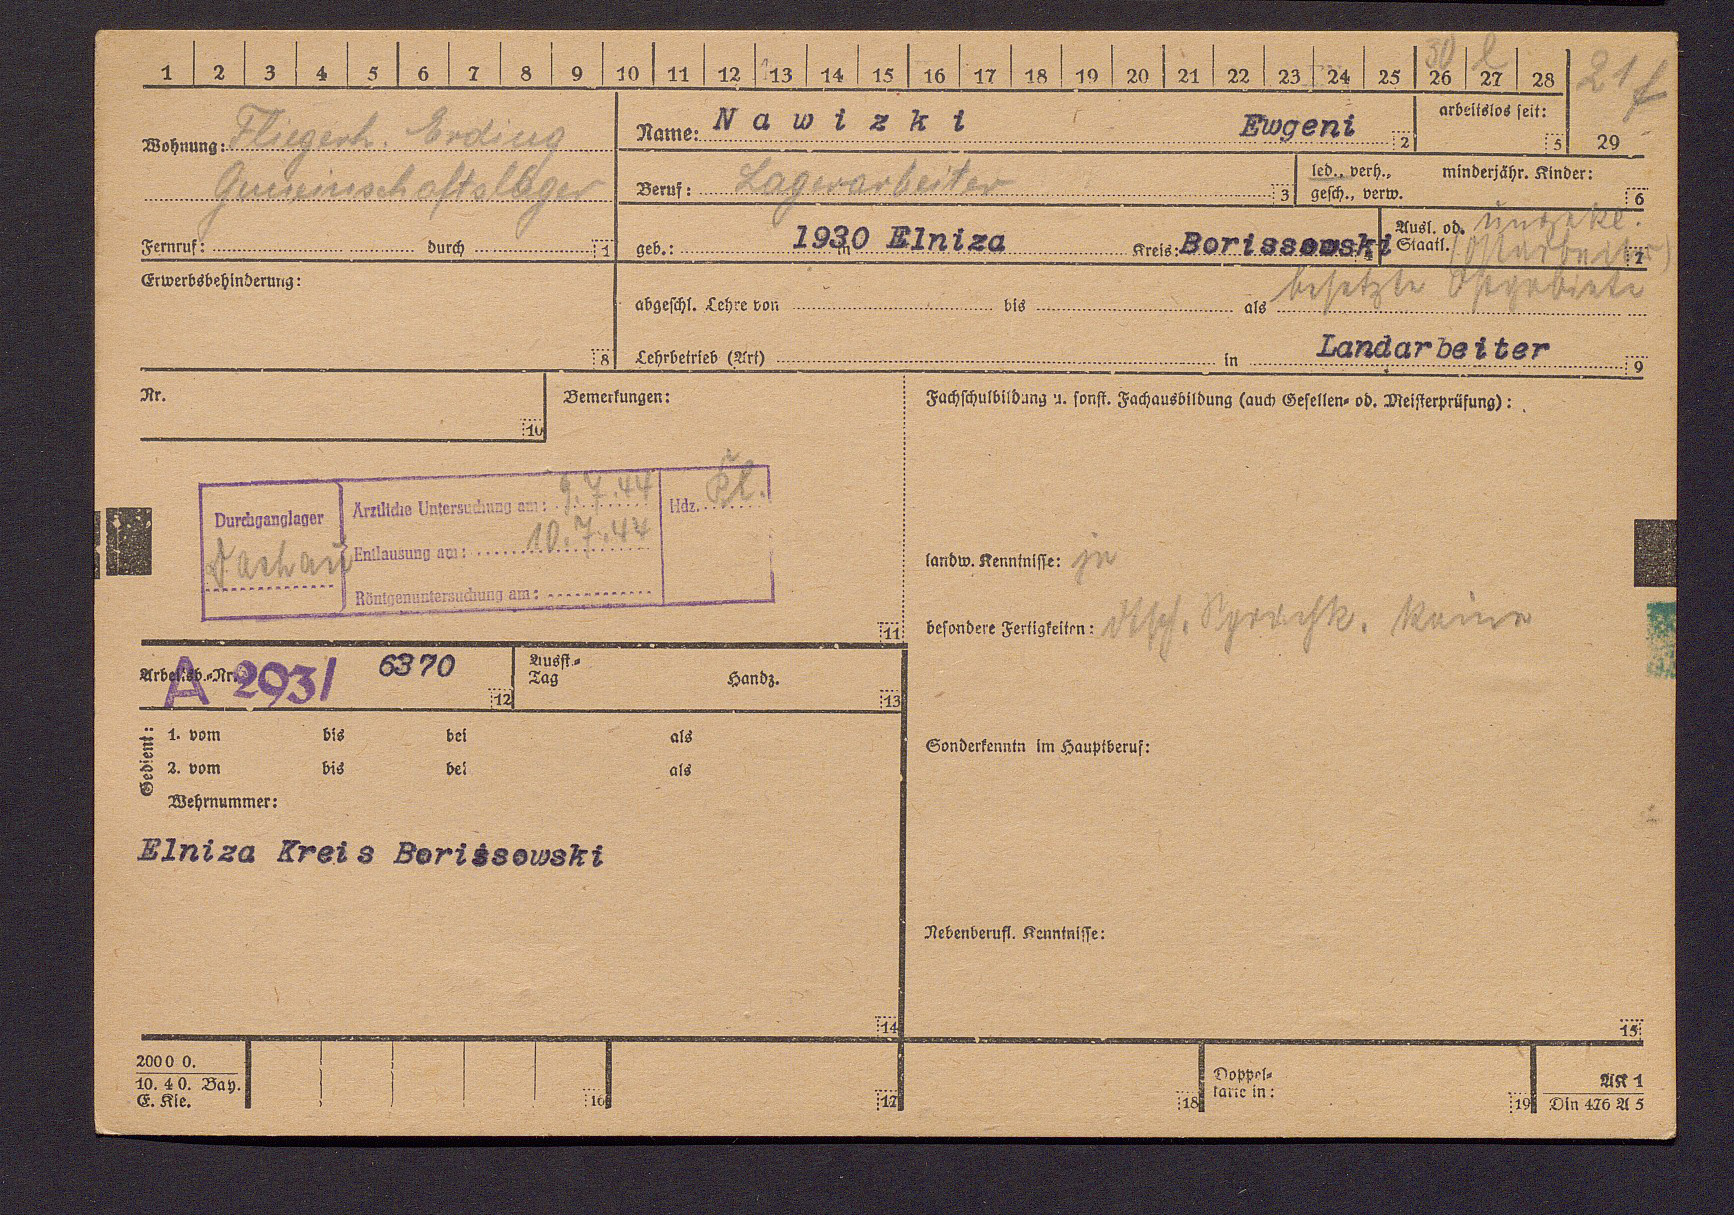 1 2 3 4 5 6 7 8 9 10 11 12 13 14 15 16 17 18 19 20 21 22 23 24 25 26 27 28
30 21 f
Wohnung: Fliegerh. Erding
Gemeinschaftslager
Fernruf: durch 1
Name: Nawizki Ewgeni 2
arbeitslos seit: 5
29
Beruf: Lagerarbeiter 3
led., verh., gesch., verw.
minderjähr. Kinder: 6
geb.: 1930 in Elniza Kreis: Borissowski 4
Ausl. od. Staatl. ungekl. 7
(Ostarbeiter)
besetzte Ostgebiete
Erwerbsbehinderung: 8
abgeschl. Lehre von bis als
Lehrbetrieb (Art) in Landarbeiter 9
Nr. 10
Bemerkungen:
Durchganglager
Dachau
Ärztliche Untersuchung am: 9.7.44
Entlausung am: 10.7.44
Röntgenuntersuchung am:
Hdz.
11
Fachschulbildung u. sonst. Fachausbildung (auch Gesellen- od. Meisterprüfung):
landw. Kenntnisse: ja
besondere Fertigkeiten: dtsch. Sprachk. keine
Sonderkenntn im Hauptberuf:
Nebenberufl. Kenntnisse:
15
Arbeitsb.-Nr. A 293/ 6370 12
Ausst.-Tag Handz. 13
Gedient:
1. vom bis bei als
2. vom bis bei als
Wehrnummer:
Elniza Kreis Borissowski
14
2000 0.
10. 40. Bay.
E. Kle.
16
17
18
Doppel-
karte in:
19
AK 1
Din 476 A 5